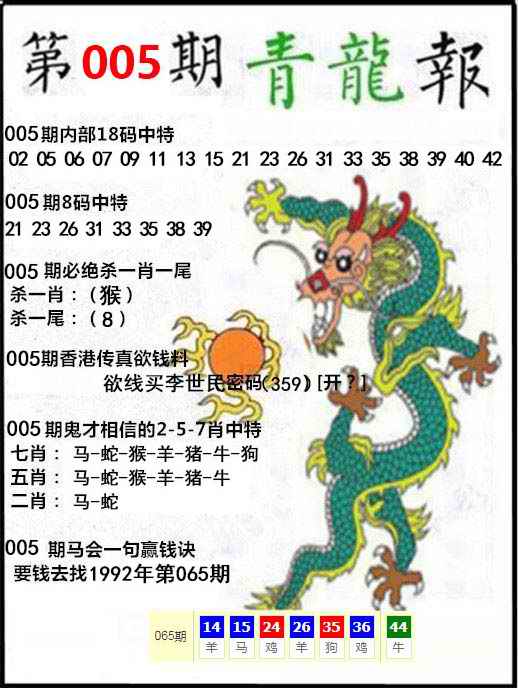 第005期青龍報
005期内部18码中特
02 05 06 07 09 11 13 15 21 23 26 31 33 35 38 39 40 42
005期8码中特
21 23 26 31 33 35 38 39
005 期必绝杀一肖一尾
杀一肖：（猴）
杀一尾：（8）
005期香港传真欲钱料
欲线买李世民密码(359)[开？]
005期鬼才相信的2-5-7肖中特
七肖：马-蛇-猴-羊-猪-牛-狗
五肖：马-蛇-猴-羊-猪-牛
二肖：马-蛇
005 期马会一句赢钱诀
要钱去找1992年第065期
065期 14 15 24 26 35 36 44
羊 马 鸡 羊 狗 鸡 牛